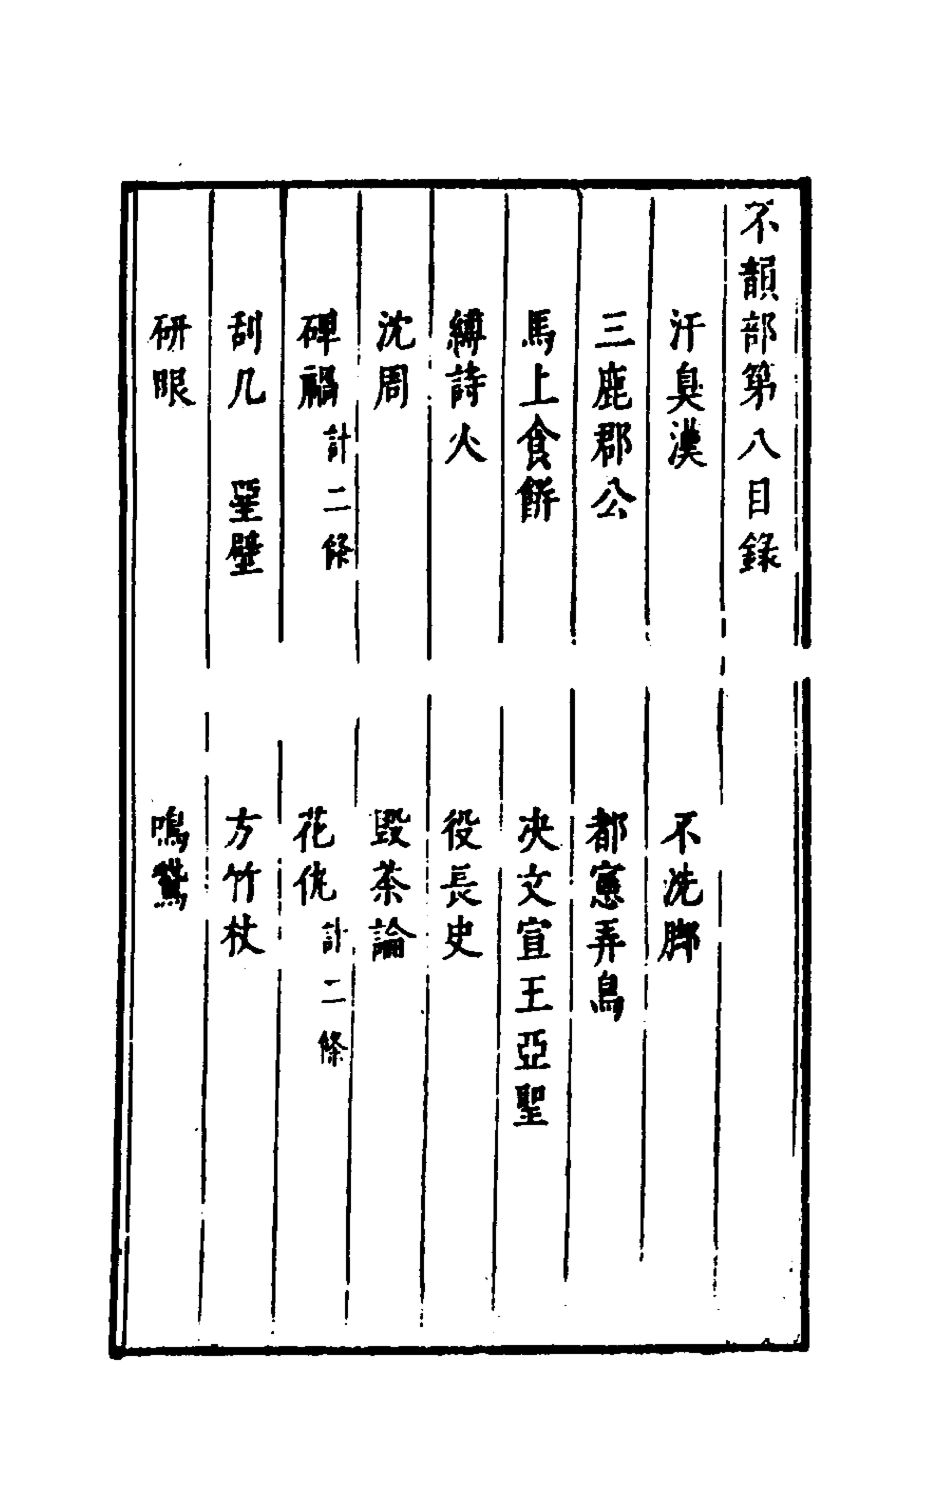 不韻部第八目錄
汗臭漢　不洗腳
三鹿郡公　都憲弄鳥
馬上食餅　决文宣王亞聖
縛詩火　役長史
沈周　毀茶論
碑禍計二條　花仇計二條
刮几　堊壁　方竹杖
研眼　鳴驇